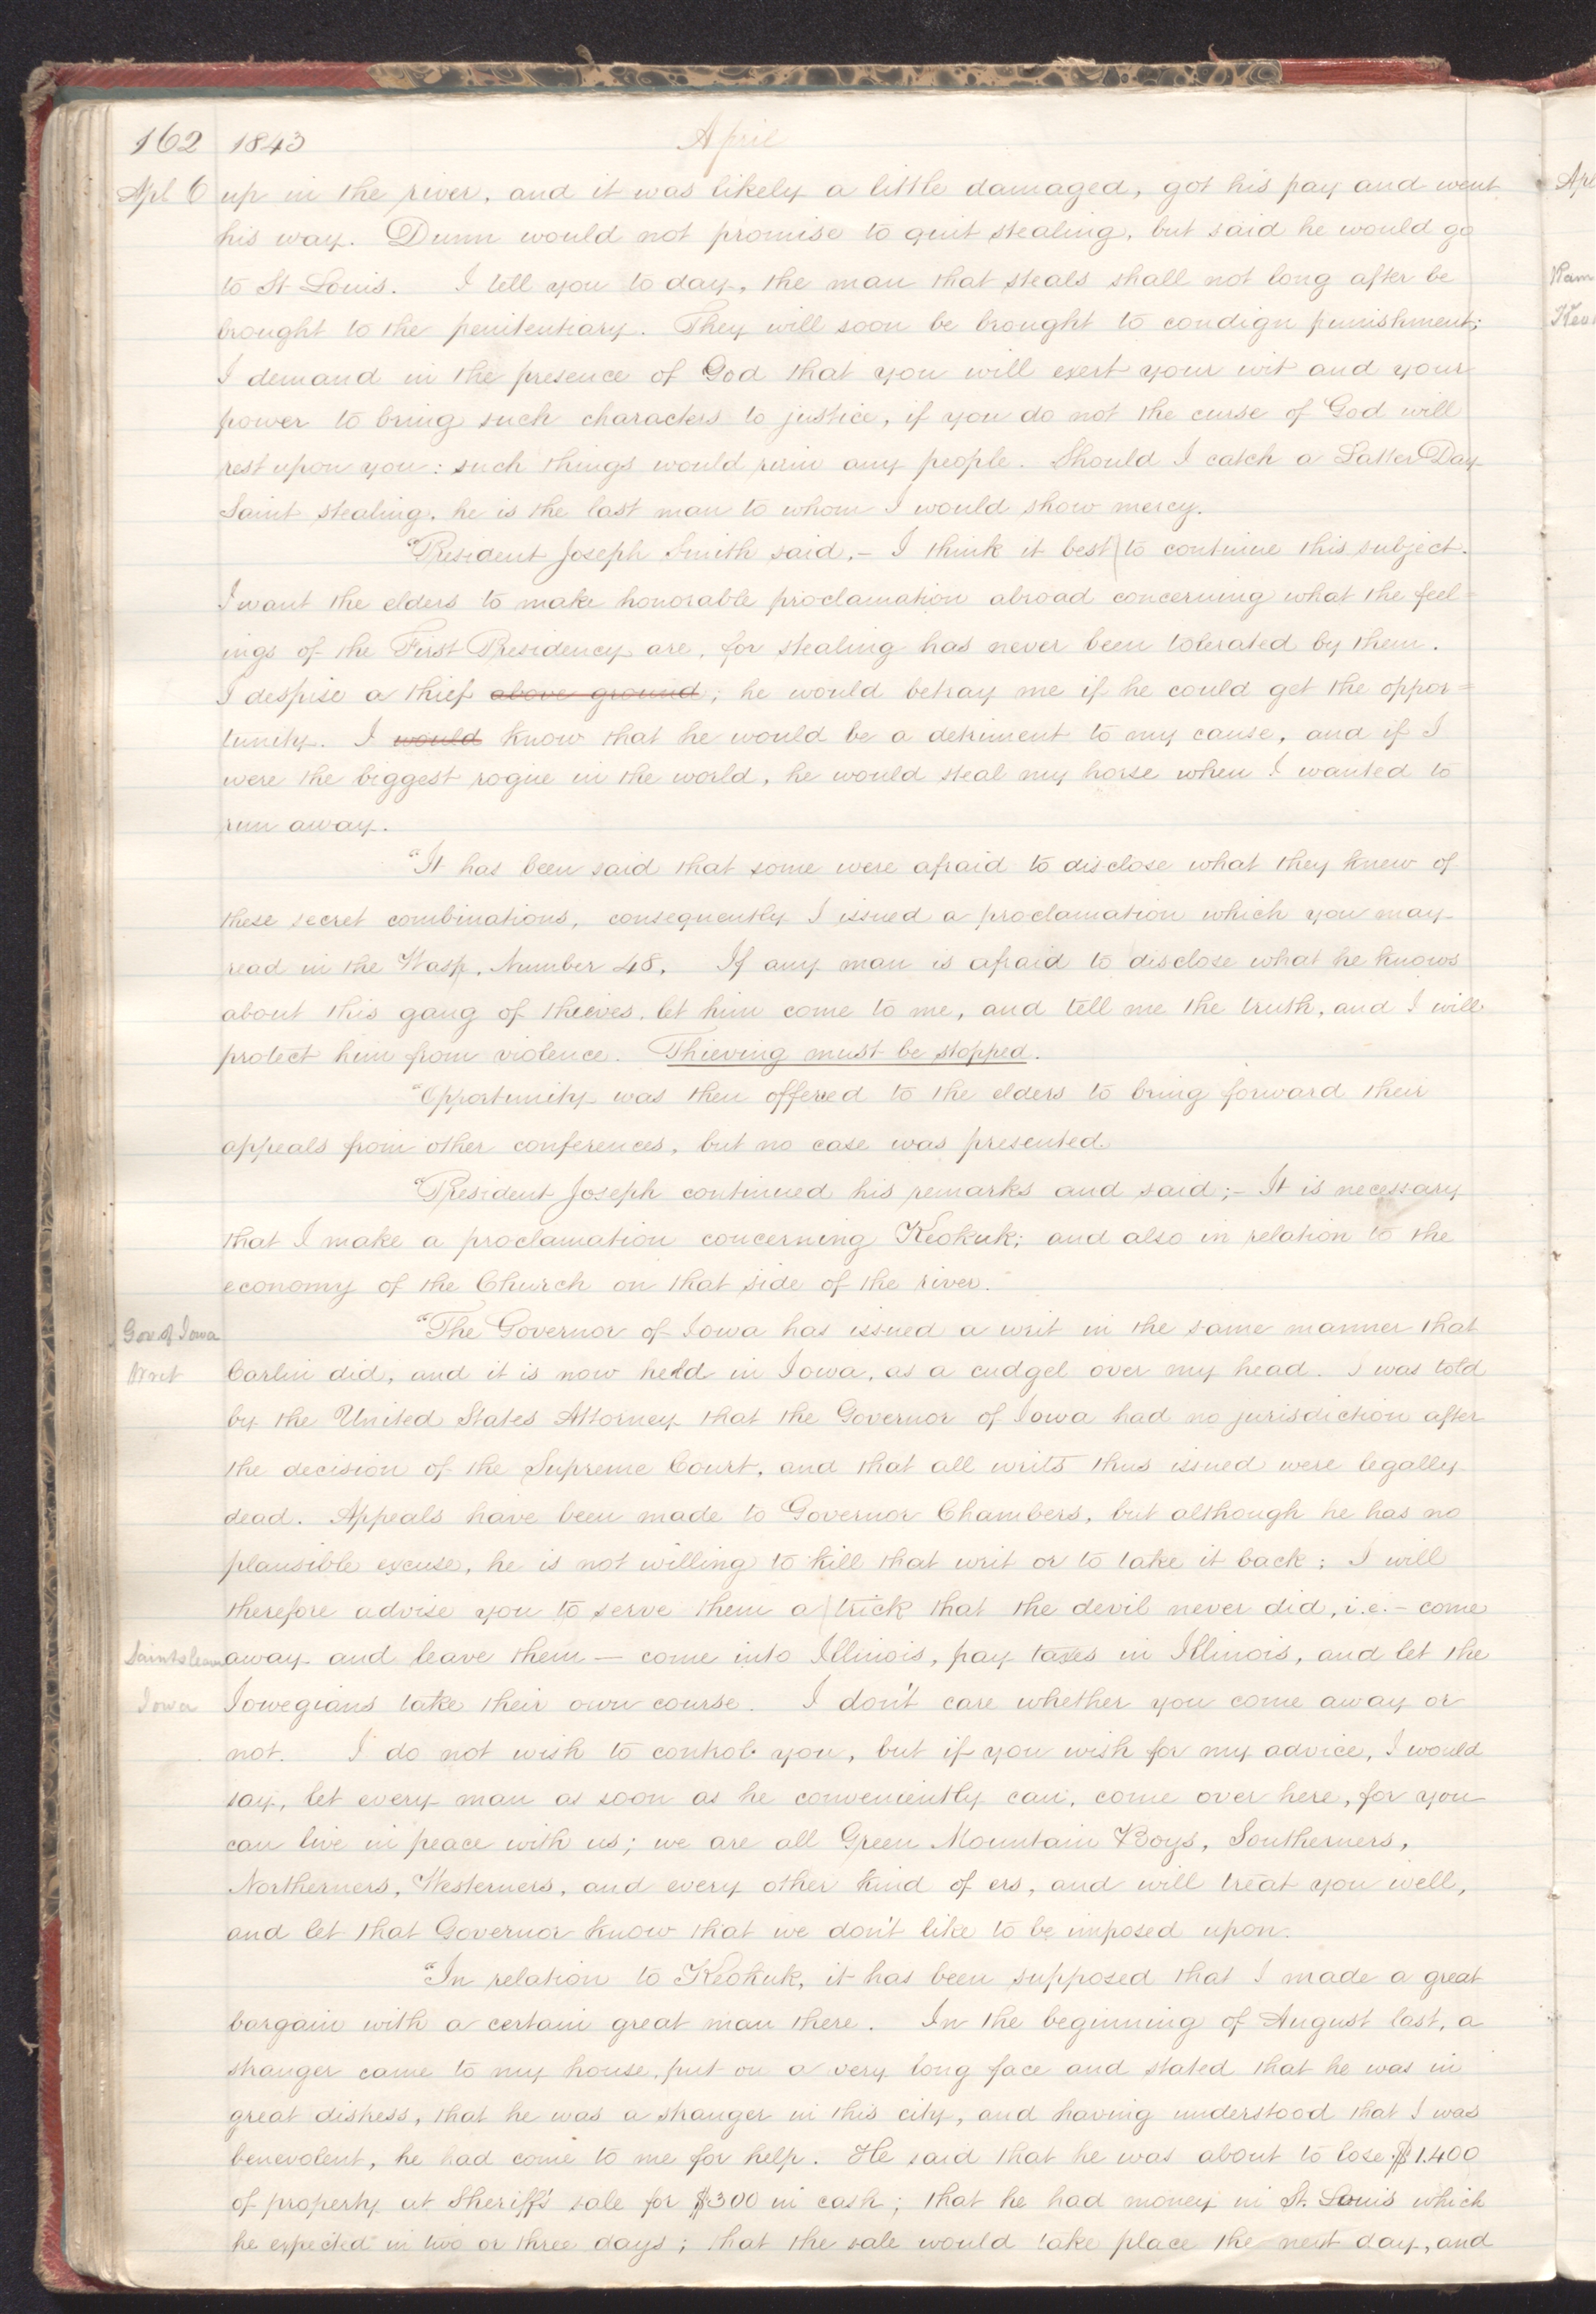 162 1843 April
Apl 6 up in the river, and it was likely a little damaged, got his pay and went
his way. Dunn would not promise to quit stealing, but said he would go
to St Louis. I tell you to day, the man that steals shall not long after be
brought to the penitentiary. They will soon be brought to condign punishment;
I demand in the presence of God that you will exert your wit and your
power to bring such characters to justice, if you do not the curse of God will
rest upon you: such things would ruin any people. Should I catch a Latter Day
Saint stealing, he is the last man to whom I would show mercy.
"President Joseph Smith said,- I think it best to continue this subject.
I want the elders to make honorable proclamation abroad concerning what the feel-
ings of the First Presidency are, for stealing has never been tolerated by them.
I despise a thief above ground; he would betray me if he could get the oppor=
tunity. I would know that he would be a detriment to my cause, and if I
were the biggest rogue in the world, he would steal my horse when I wanted to
run away.
"It has been said that some were afraid to disclose what they knew of
these secret combinations, consequently I issued a proclamation which you may
read in the Wasp, Number 48. If any man is afraid to disclose what he knows
about this gang of thieves, let him come to me, and tell me the truth, and I will
protect him from violence. Thieving must be stopped.
"Opportunity was then offered to the elders to bring forward their
appeals from other conferences, but no case was presented.
"President Joseph continued his remarks and said;- It is necessary
that I make a proclamation concerning Keokuk; and also in relation to the
economy of the Church on that side of the river.
Gov. of Iowa "The Governor of Iowa has issued a writ in the same manner that
Writ Carlin did, and it is now held in Iowa, as a cudgel over my head. I was told
by the United States Attorney that the Governor of Iowa had no jurisdiction after
the decision of the Supreme Court, and that all writs thus issued were legally
dead. Appeals have been made to Governor Chambers, but although he has no
plausible excuse, he is not willing to kill that writ or to take it back; I will
therefore advise you to serve them a trick that the devil never did, i.e.- come
Saints leave away and leave them — come into Illinois, pay taxes in Illinois, and let the
Iowa Iowegians take their own course. I don't care whether you come away or
not. I do not wish to control you, but if you wish for my advice, I would
say, let every man as soon as he conveniently can, come over here, for you
can live in peace with us; we are all Green Mountain Boys, Southerners,
Northerners, Westerners, and every other kind of ers, and will treat you well,
and let that Governor know that we don't like to be imposed upon.
"In relation to Keokuk, it has been supposed that I made a great
bargain with a certain great man there. In the beginning of August last, a
stranger came to my house, put on a very long face and stated that he was in
great distress, that he was a stranger in this city, and having understood that I was
benevolent, he had come to me for help. He said that he was about to lose $1.400
of property at Sheriff's sale for $300 in cash; that he had money in St. Louis which
he expected in two or three days; that the sale would take place the next day, and
Apl